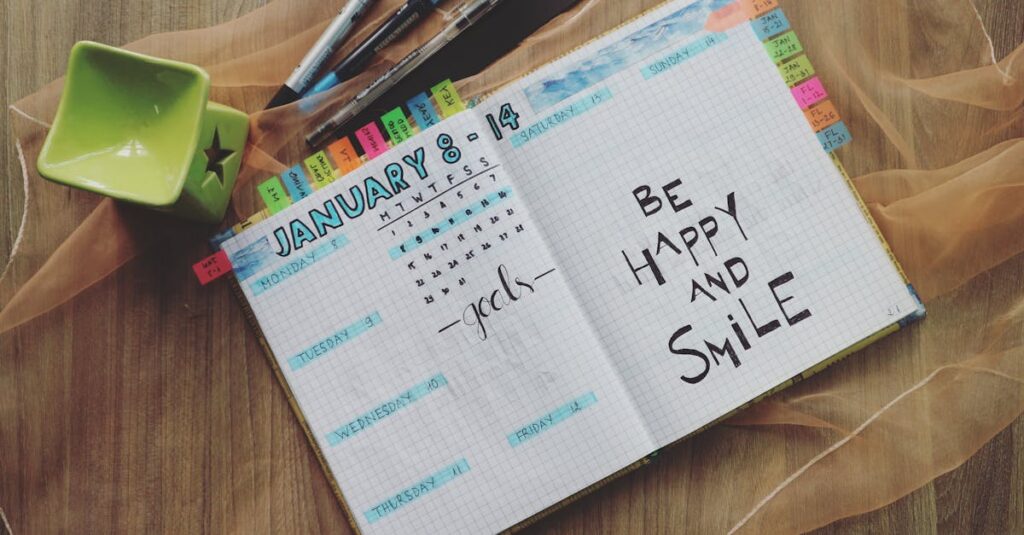 JANUARY 8-14
M T W T F S S
1 2 3 4 5 6 7
8 9 10 11 12 13 14
15 16 17 18 19 20 21
22 23 24 25 26 27 28
29 30 31
MONDAY 8
goals
TUESDAY 9
WEDNESDAY 10
THURSDAY 11
FRIDAY 12
SATURDAY 13
SUNDAY 14
BE
HAPPY
AND
SMiLE
KEY
JAN
15-21
JAN
22-28
JAN
29-31
FL
1-12
FL
13-26
FL
27-31